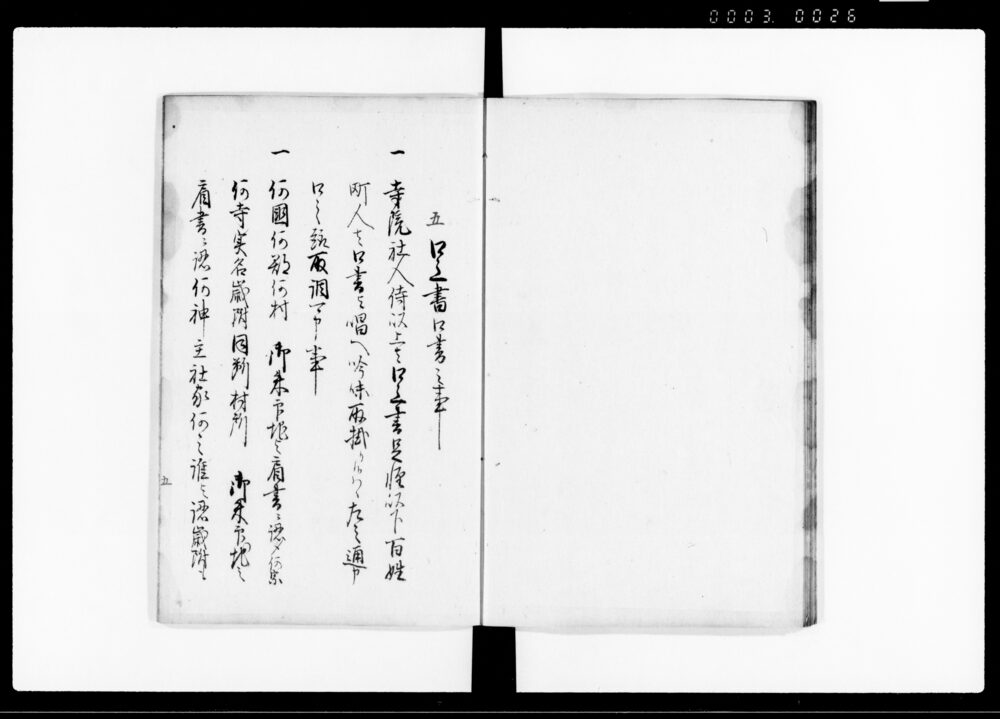 0003 0026
五 口上書口書之事
一 寺院社人侍以上者口上書足軽以下百姓
町人者口書与唱へ吟味取掛り候ハヽ左之通
口之致取調可申事
一 何國何郡何村 御朱印地与肩書ニ認メ何宗
何寺実名歳附同断村
御朱印地与
肩書ニ認何神主社家何之誰与認歳附も
五